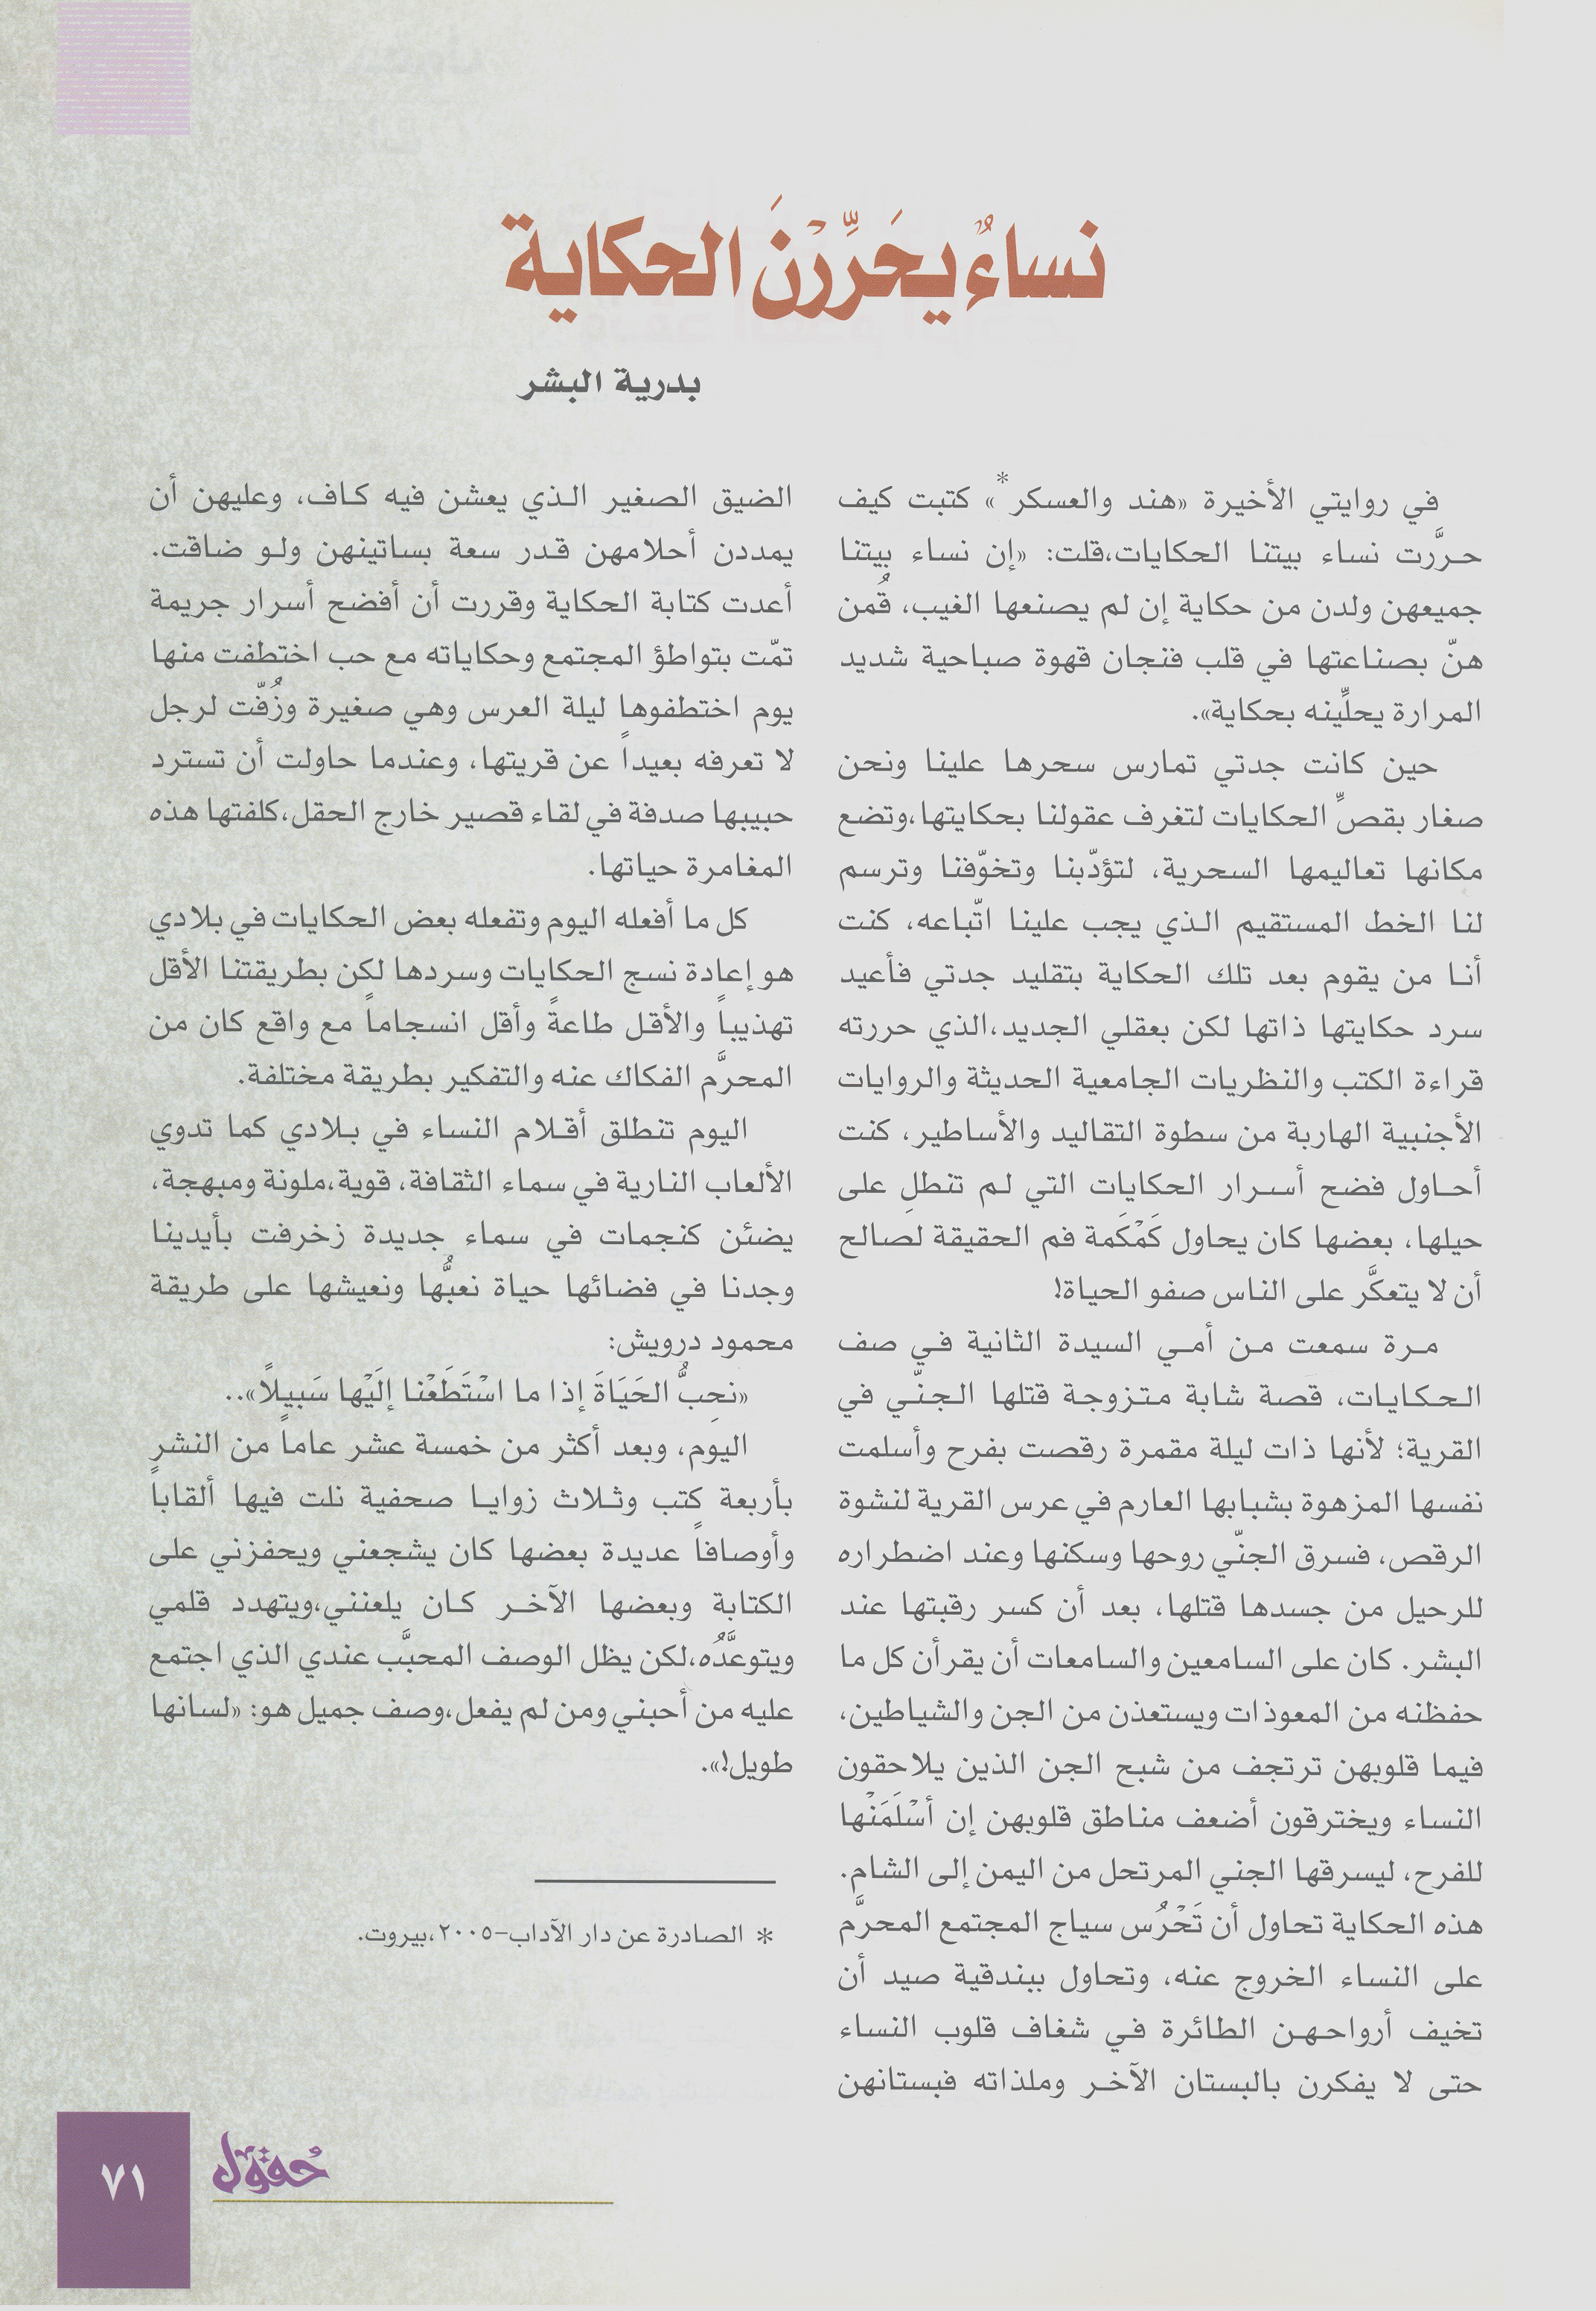 نساءٌ يحَرِّرْنَ الحكاية
بدرية البشر
في روايتي الأخيرة «هند والعسكر*» كتبت كيف
حرَّرت نساء بيتنا الحكايات،قلت: «إن نساء بيتنا
جميعهن ولدن من حكاية إن لم يصنعها الغيب، قُمن
هنّ بصناعتها في قلب فنجان قهوة صباحية شديد
المرارة يحلِّينه بحكاية».
حين كانت جدتي تمارس سحرها علينا ونحن
صغار بقصِّ الحكايات لتغرف عقولنا بحكايتها،وتضع
مكانها تعاليمها السحرية، لتؤدّبنا وتخوّفنا وترسم
لنا الخط المستقيم الذي يجب علينا اتّباعه، كنت
أنا من يقوم بعد تلك الحكاية بتقليد جدتي فأعيد
سرد حكايتها ذاتها لكن بعقلي الجديد،الذي حررته
قراءة الكتب والنظريات الجامعية الحديثة والروايات
الأجنبية الهاربة من سطوة التقاليد والأساطير، كنت
أحاول فضح أسرار الحكايات التي لم تنطلِ على
حيلها، بعضها كان يحاول كَمْكَمة فم الحقيقة لصالح
أن لا يتعكَّر على الناس صفو الحياة!
مرة سمعت من أمي السيدة الثانية في صف
الحكايات، قصة شابة متزوجة قتلها الجنّي في
القرية؛ لأنها ذات ليلة مقمرة رقصت بفرح وأسلمت
نفسها المزهوة بشبابها العارم في عرس القرية لنشوة
الرقص، فسرق الجنّي روحها وسكنها وعند اضطراره
للرحيل من جسدها قتلها، بعد أن كسر رقبتها عند
البشر. كان على السامعين والسامعات أن يقرأن كل ما
حفظنه من المعوذات ويستعذن من الجن والشياطين،
فيما قلوبهن ترتجف من شبح الجن الذين يلاحقون
النساء ويخترقون أضعف مناطق قلوبهن إن أسْلَمَنْها
للفرح، ليسرقها الجني المرتحل من اليمن إلى الشام.
هذه الحكاية تحاول أن تَحْرُس سياج المجتمع المحرَّم
على النساء الخروج عنه، وتحاول ببندقية صيد أن
تخيف أرواحهن الطائرة في شغاف قلوب النساء
حتى لا يفكرن بالبستان الآخر وملذاته فبستانهن
الضيق الصغير الذي يعشن فيه كاف، وعليهن أن
يمددن أحلامهن قدر سعة بساتينهن ولو ضاقت.
أعدت كتابة الحكاية وقررت أن أفضح أسرار جريمة
تمّت بتواطؤ المجتمع وحكاياته مع حب اختطفت منها
يوم اختطفوها ليلة العرس وهي صغيرة وزُفّت لرجل
لا تعرفه بعيداً عن قريتها، وعندما حاولت أن تسترد
حبيبها صدفة في لقاء قصير خارج الحقل،كلفتها هذه
المغامرة حياتها.
كل ما أفعله اليوم وتفعله بعض الحكايات في بلادي
هو إعادة نسج الحكايات وسردها لكن بطريقتنا الأقل
تهذيباً والأقل طاعةً وأقل انسجاماً مع واقع كان من
المحرَّم الفكاك عنه والتفكير بطريقة مختلفة.
اليوم تنطلق أقلام النساء في بلادي كما تدوي
الألعاب النارية في سماء الثقافة، قوية،ملونة ومبهجة،
يضئن كنجمات في سماء جديدة زخرفت بأيدينا
وجدنا في فضائها حياة نعبُّها ونعيشها على طريقة
محمود درويش:
«نحِبُّ الحَيَاةَ إذا ما اسْتَطَعْنا إلَيْها سَبيلاً»..
اليوم، وبعد أكثر من خمسة عشر عاماً من النشر
بأربعة كتب وثلاث زوايا صحفية نلت فيها ألقاباً
وأوصافاً عديدة بعضها كان يشجعني ويحفزني على
الكتابة وبعضها الآخر كان يلعنني،ويتهدد قلمي
ويتوعَّدُه،لكن يظل الوصف المحبَّب عندي الذي اجتمع
عليه من أحبني ومن لم يفعل،وصف جميل هو: «لسانها
طويل!».
* الصادرة عن دار الآداب-٢٠٠٥،بيروت.
حُقول
٧١